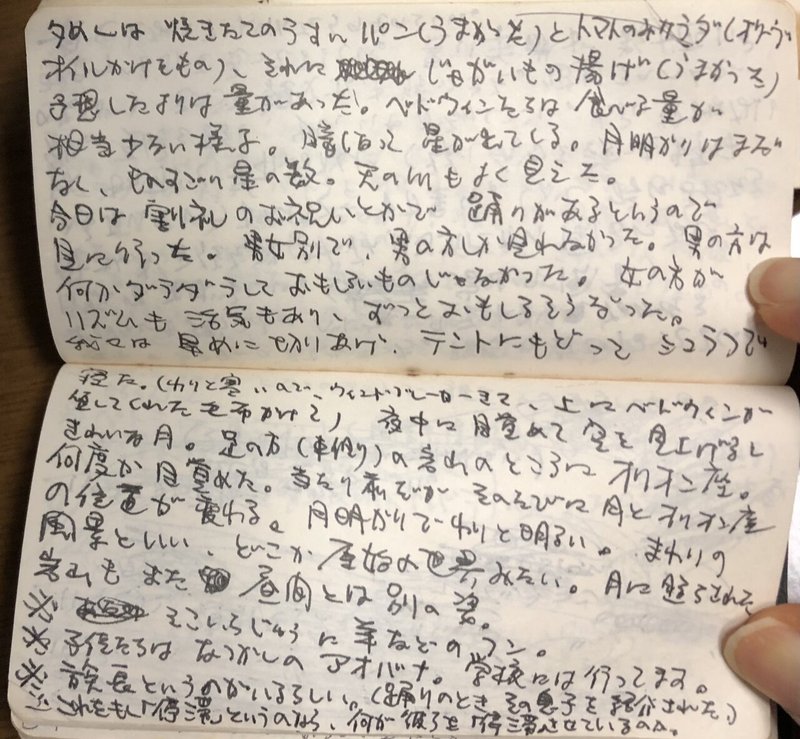 夕めしは 焼きたてのうすいパン(うまかった)とトマトのサラダ(オリーブ
オイルかけたもの)、それに じゃがいもの揚げ(うまかった)
予想したよりは量があった。ベドウィンたちは 食べる量が
相当少ない様子。 星が出てくる。月明かりはまだ
なし、ものすごい星の数。天の川もよく見えた。
今日は 割礼のお祝いとかで 踊りがあるというので
見に行った。男女別で、男の方しか見れなかった。男の方は
何かダラダラして おもしろいものじゃなかった。女の方が
リズムも 活気もあり、ずっとおもしろそうだった。
我々は 早めに切りあげ、テントにもどって シュラフで
寝た。(わりと寒いので、ウィンドブレーカーきて、上にベドウィンが
貸してくれた毛布かけて) 夜中に目覚めて空を見上げると
きれいな月。足の方(東側)の岩山のところに オリオン座。
何度か目覚めた。当たり前だが そのたびに月とオリオン座
の位置が変わる。月明かりでわりと明るい。まわりの
風景といい、どこか原始の世界みたい。月に照らされた
岩山もまた 昼間とは別の姿。
※ そこいらじゅうに羊などのフン。
※ 子供たちは なつかしのアオバナ。学校には行ってます。
※ 族長というのがいるらしい。(踊りのとき その息子を紹介された)
※ これをもし「停滞」というのなら、何が彼らを「停滞」させているのか。